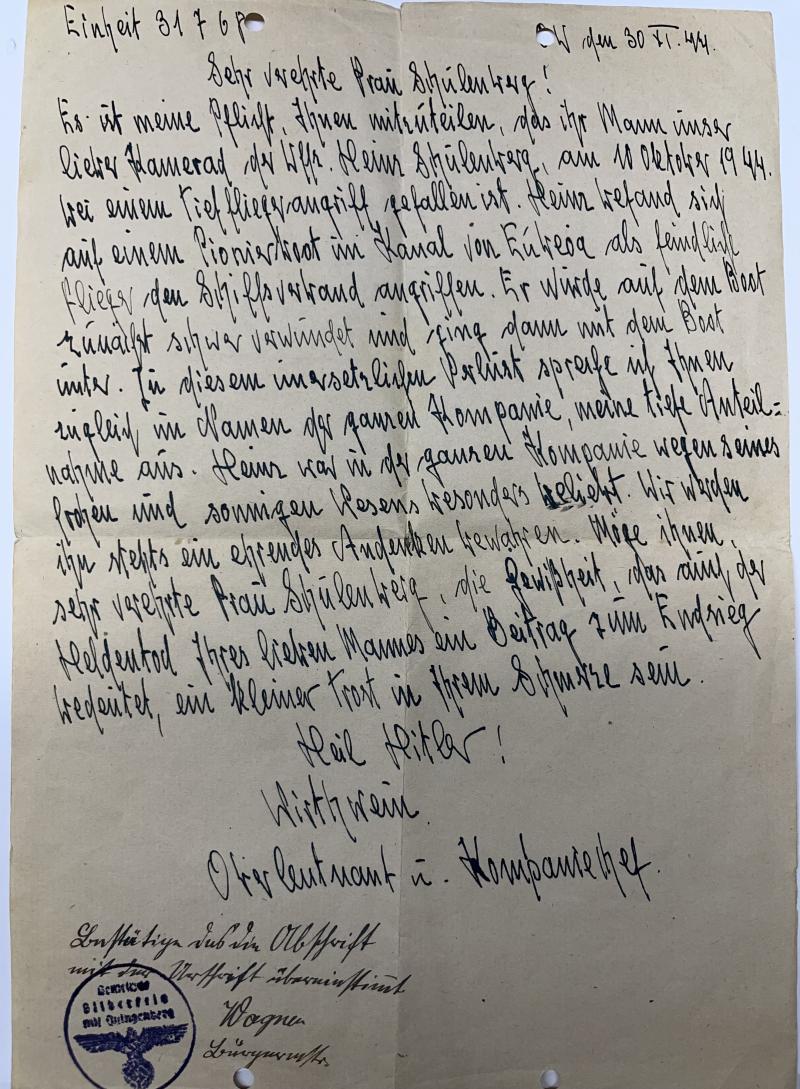 Einheit 31 7 6 P
OW den 30 XI. 44.
Sehr verehrte Frau Schulenberg!
Es ist meine Pflicht, Ihnen mitzuteilen, das ihr Mann unser
lieber Kamerad der Uffz. Heinz Schulenberg, am 10 Oktober 1944.
bei einem Tieffliegerangriff gefallen ist. Heinz befand sich
auf einem Pionierboot im Kanal von Euboea als feindlich
flieger den Schiffsverband angriffen. Er wurde auf dem Boot
zunächst schwer verwundet und ging dann mit dem Boot
unter. Zu diesem unersetzlichen Verlust spreche ich Ihnen
zugleich im Namen der ganzen Kompanie, meine tiefe Anteil=
nahme aus. Heinz war in der ganzen Kompanie wegen seines
frohen und sonnigen Wesens besonders beliebt. Wir werden
ihn stehts ein ehrendes Andenken bewahren. Möge ihnen,
sehr verehrte Frau Schulenberg, die Gewißheit, das auch der
Heldentod Ihres lieben Mannes ein Beitrag zum Endsieg
bedeutet, ein kleiner Trost in Ihrem Schmerze sein.
Heil Hitler!
Wirthwein
Oberleutnant u. Kompaniechef.
Bestätige das die Abschrift
mit der Urschrift übereinstimmt
Wagner
Bürgermstr.